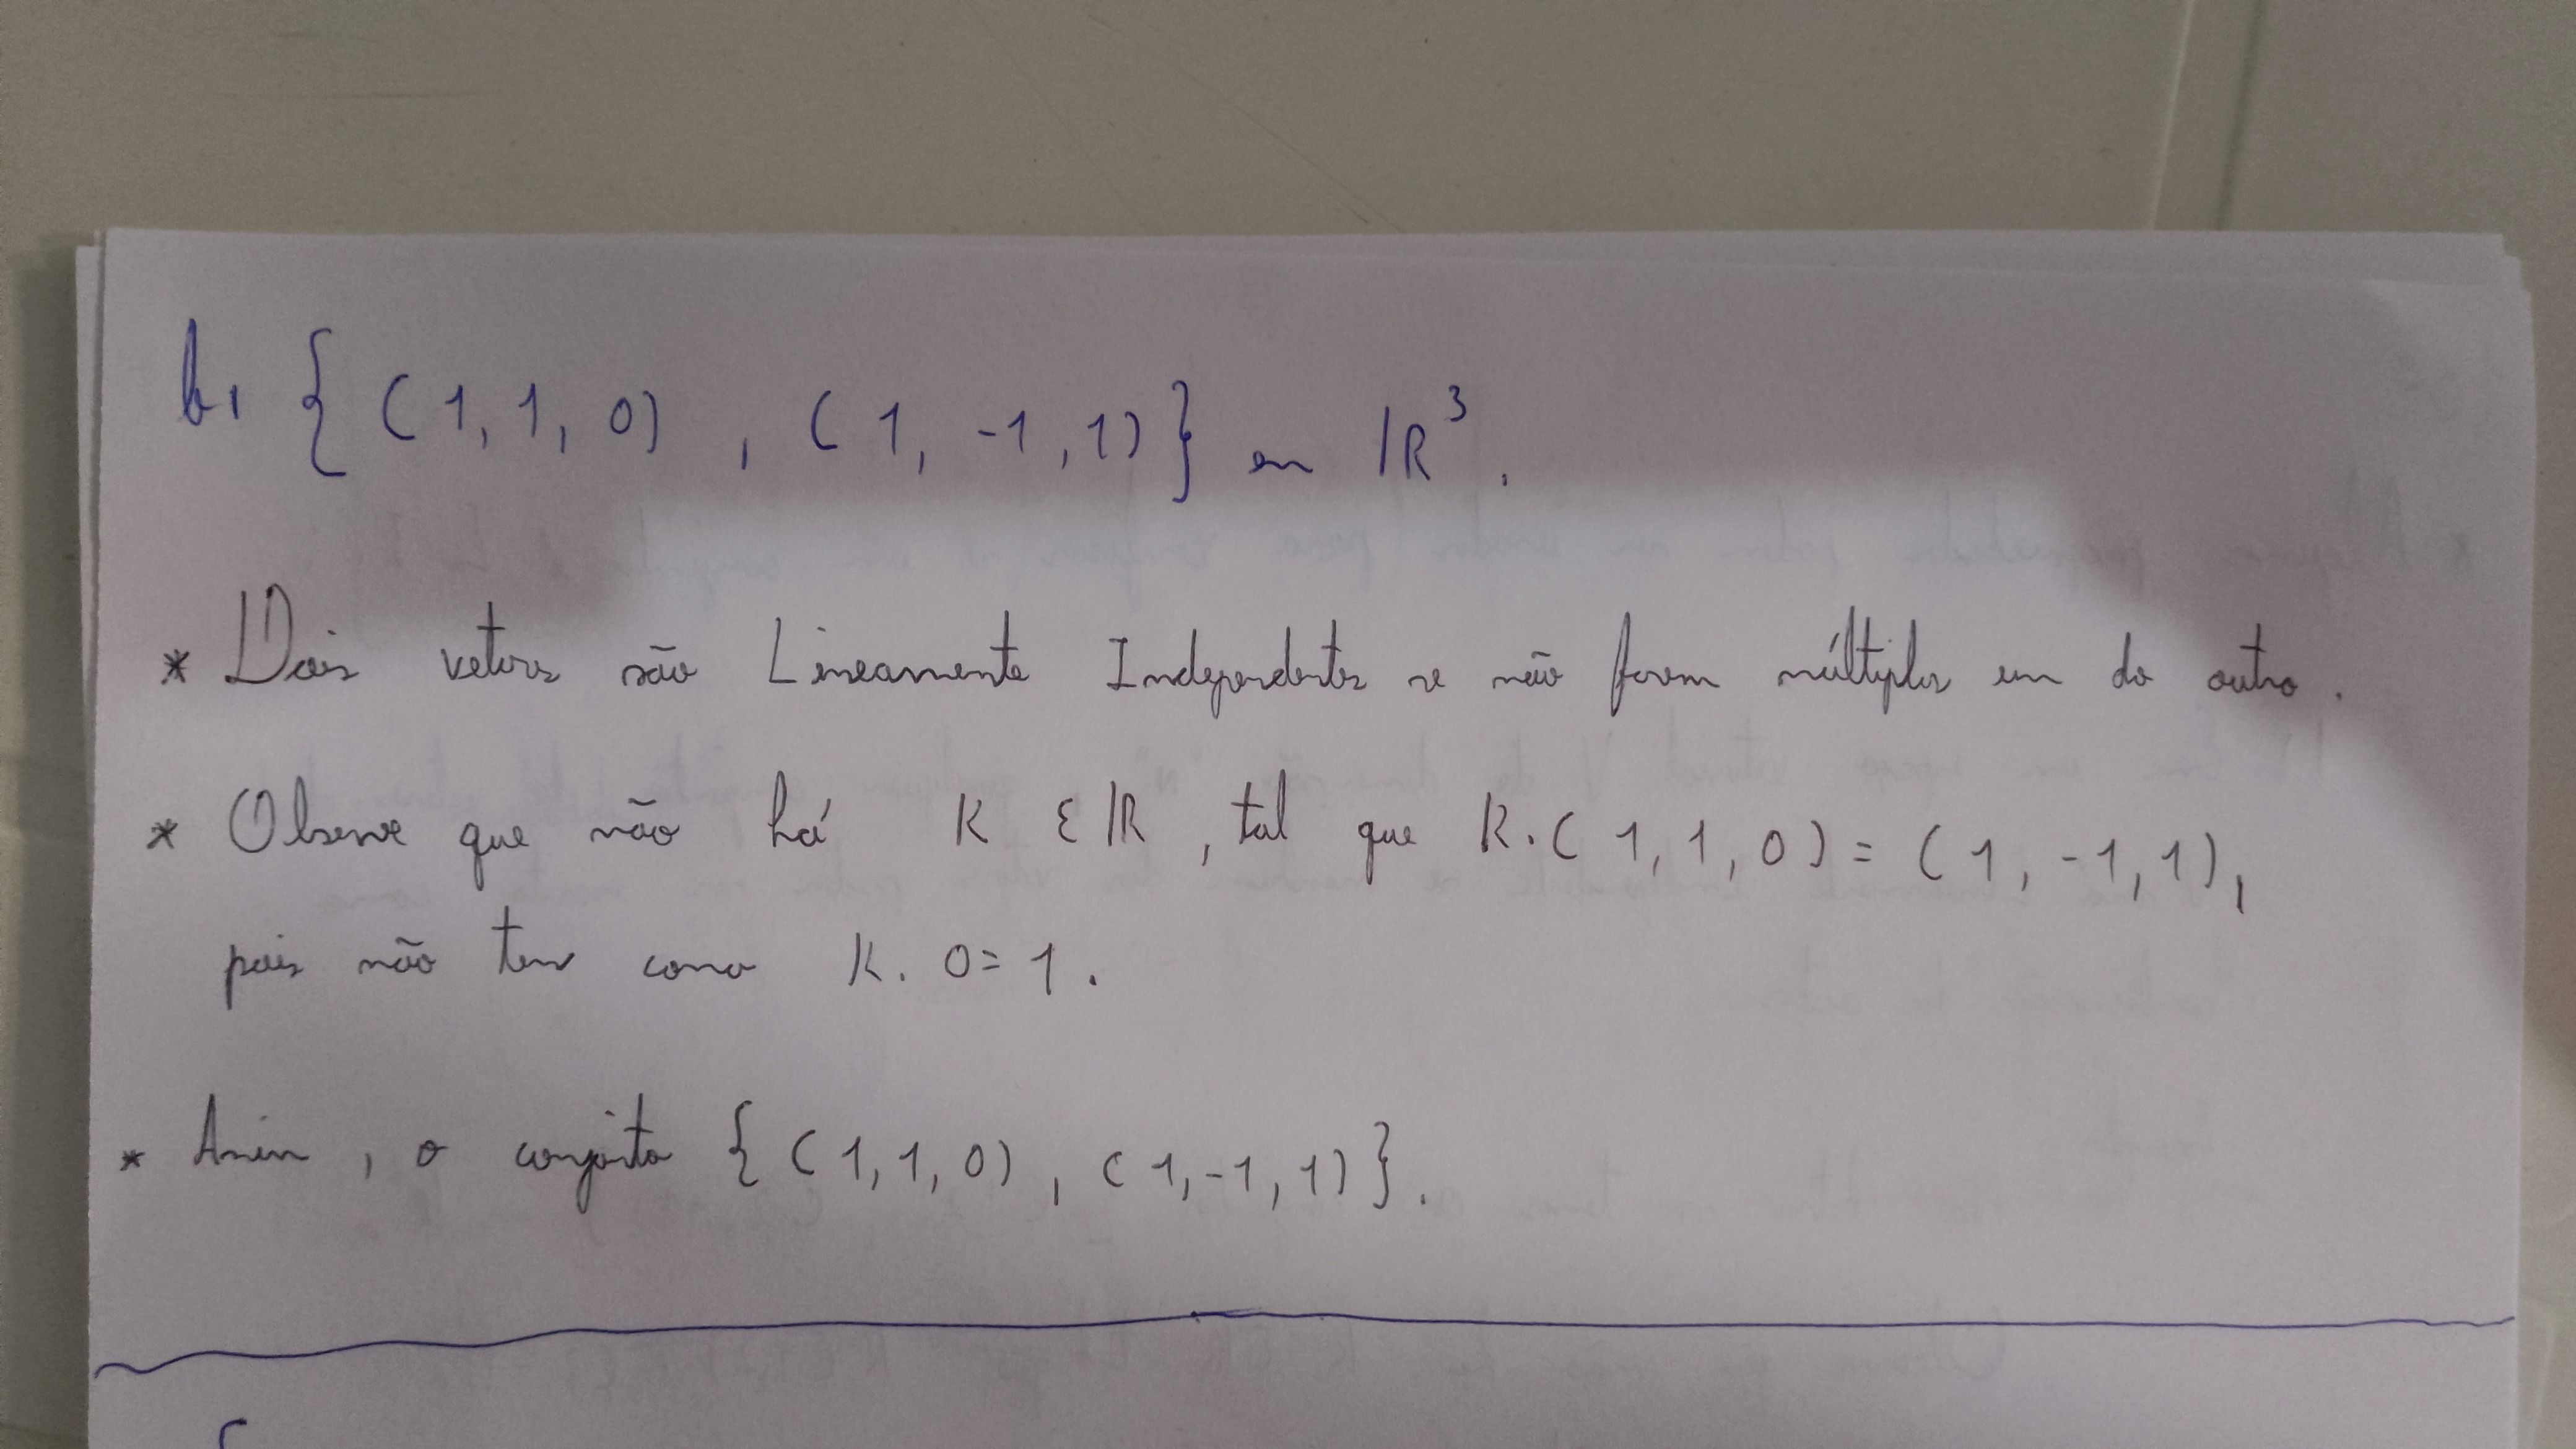 b) {(1, 1, 0) , (1, -1, 1)} em IR³.
* Dois vetores são Linearmente Independentes se não forem múltiplos um do outro.
* Observe que não há K ∈ IR, tal que K.(1, 1, 0) = (1, -1, 1),
pois não tem como K. 0 = 1.
* Assim, o conjunto {(1, 1, 0) , (1, -1, 1)}.